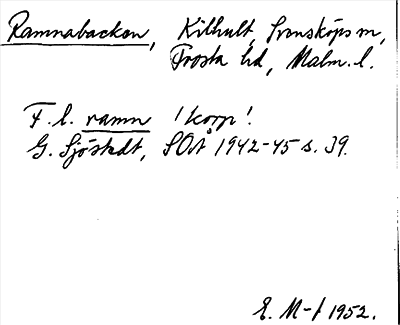 Ramnabacken, Kilhult, Svensköps sn,
Frosta hd, Malm. l.
F. l. ramn 'korp'.
G. Sjöstedt, SOÅ 1942-45 s. 39.
E. M-f 1952.